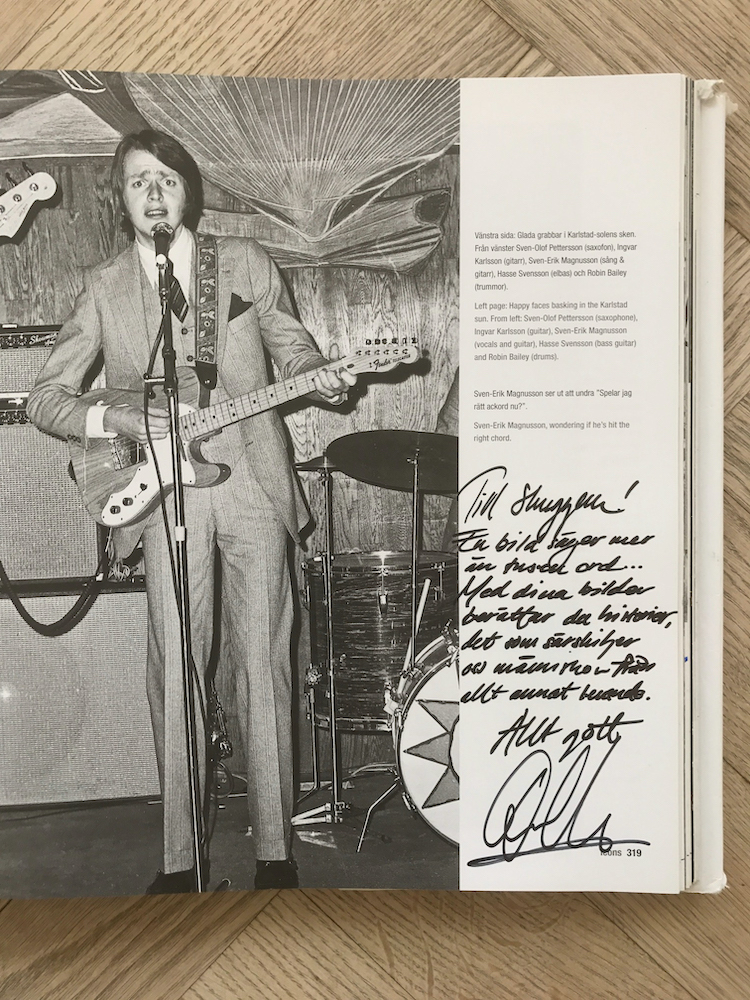 Vänstra sida: Glada grabbar i Karlstad-solens sken.
Från vänster Sven-Olof Pettersson (saxofon), Ingvar
Karlsson (gitarr), Sven-Erik Magnusson (sång &
gitarr), Hasse Svensson (elbas) och Robin Bailey
(trummor).
Left page: Happy faces basking in the Karlstad
sun. From left: Sven-Olof Pettersson (saxophone),
Ingvar Karlsson (guitar), Sven-Erik Magnusson
(vocals and guitar), Hasse Svensson (bass guitar)
and Robin Bailey (drums).
Sven-Erik Magnusson ser ut att undra "Spelar jag
rätt ackord nu?".
Sven-Erik Magnusson, wondering if he's hit the
right chord.
Till Skuggan!
En bild säger mer
än tusen ord...
Med dina bilder
berättar du historier,
det som särskiljer
oss människor från
allt annat levande.
Allt gott
Icons 319
Fender